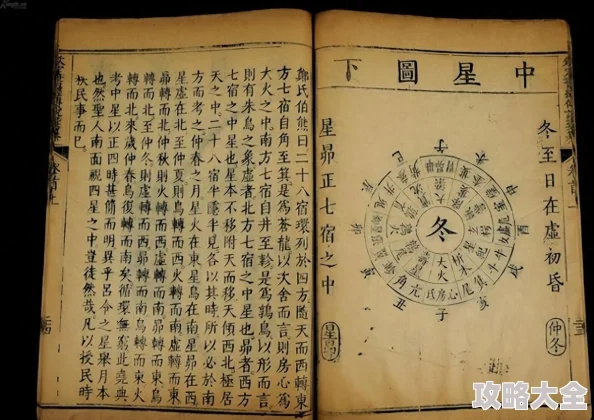 中星圖下
冬至日在虛初昏
仲冬
冬
大火
子
丑
寅
卯
辰
巳
申
戌
亥
星昴正七宿之中
星昴
鄭氏伯熊曰二十八宿環列於四方隨天而西轉東
方七宿自角至箕是為蒼龍以次舍而言則房心為
大火之中南方七宿自井至軫是為鶉鳥以形而言
則有朱鳥之象虛者北方七宿之中星也昴者西方
七宿之中星也星本不移附天而移天傾西北極居
天之中二十八宿半隱半見各以其時所以必於南
方而考之仲春之月星火在東星鳥在南星昴在西
星虛在北至仲夏則鳥轉而西火轉而南虛轉而東
昴轉而北至仲秋則火轉而西虛轉而南昴轉而東鳥
轉而北至仲冬則虛轉而西昴轉而南鳥轉而東火
轉而北來歲仲春鳥復轉而南矣循環無窮此堯典
考中星以正四時甚簡而明異乎呂令之星舉月本
也然聖人南面視四星之中豈徒然哉凡以授民時
秩民事而已
攻略大全